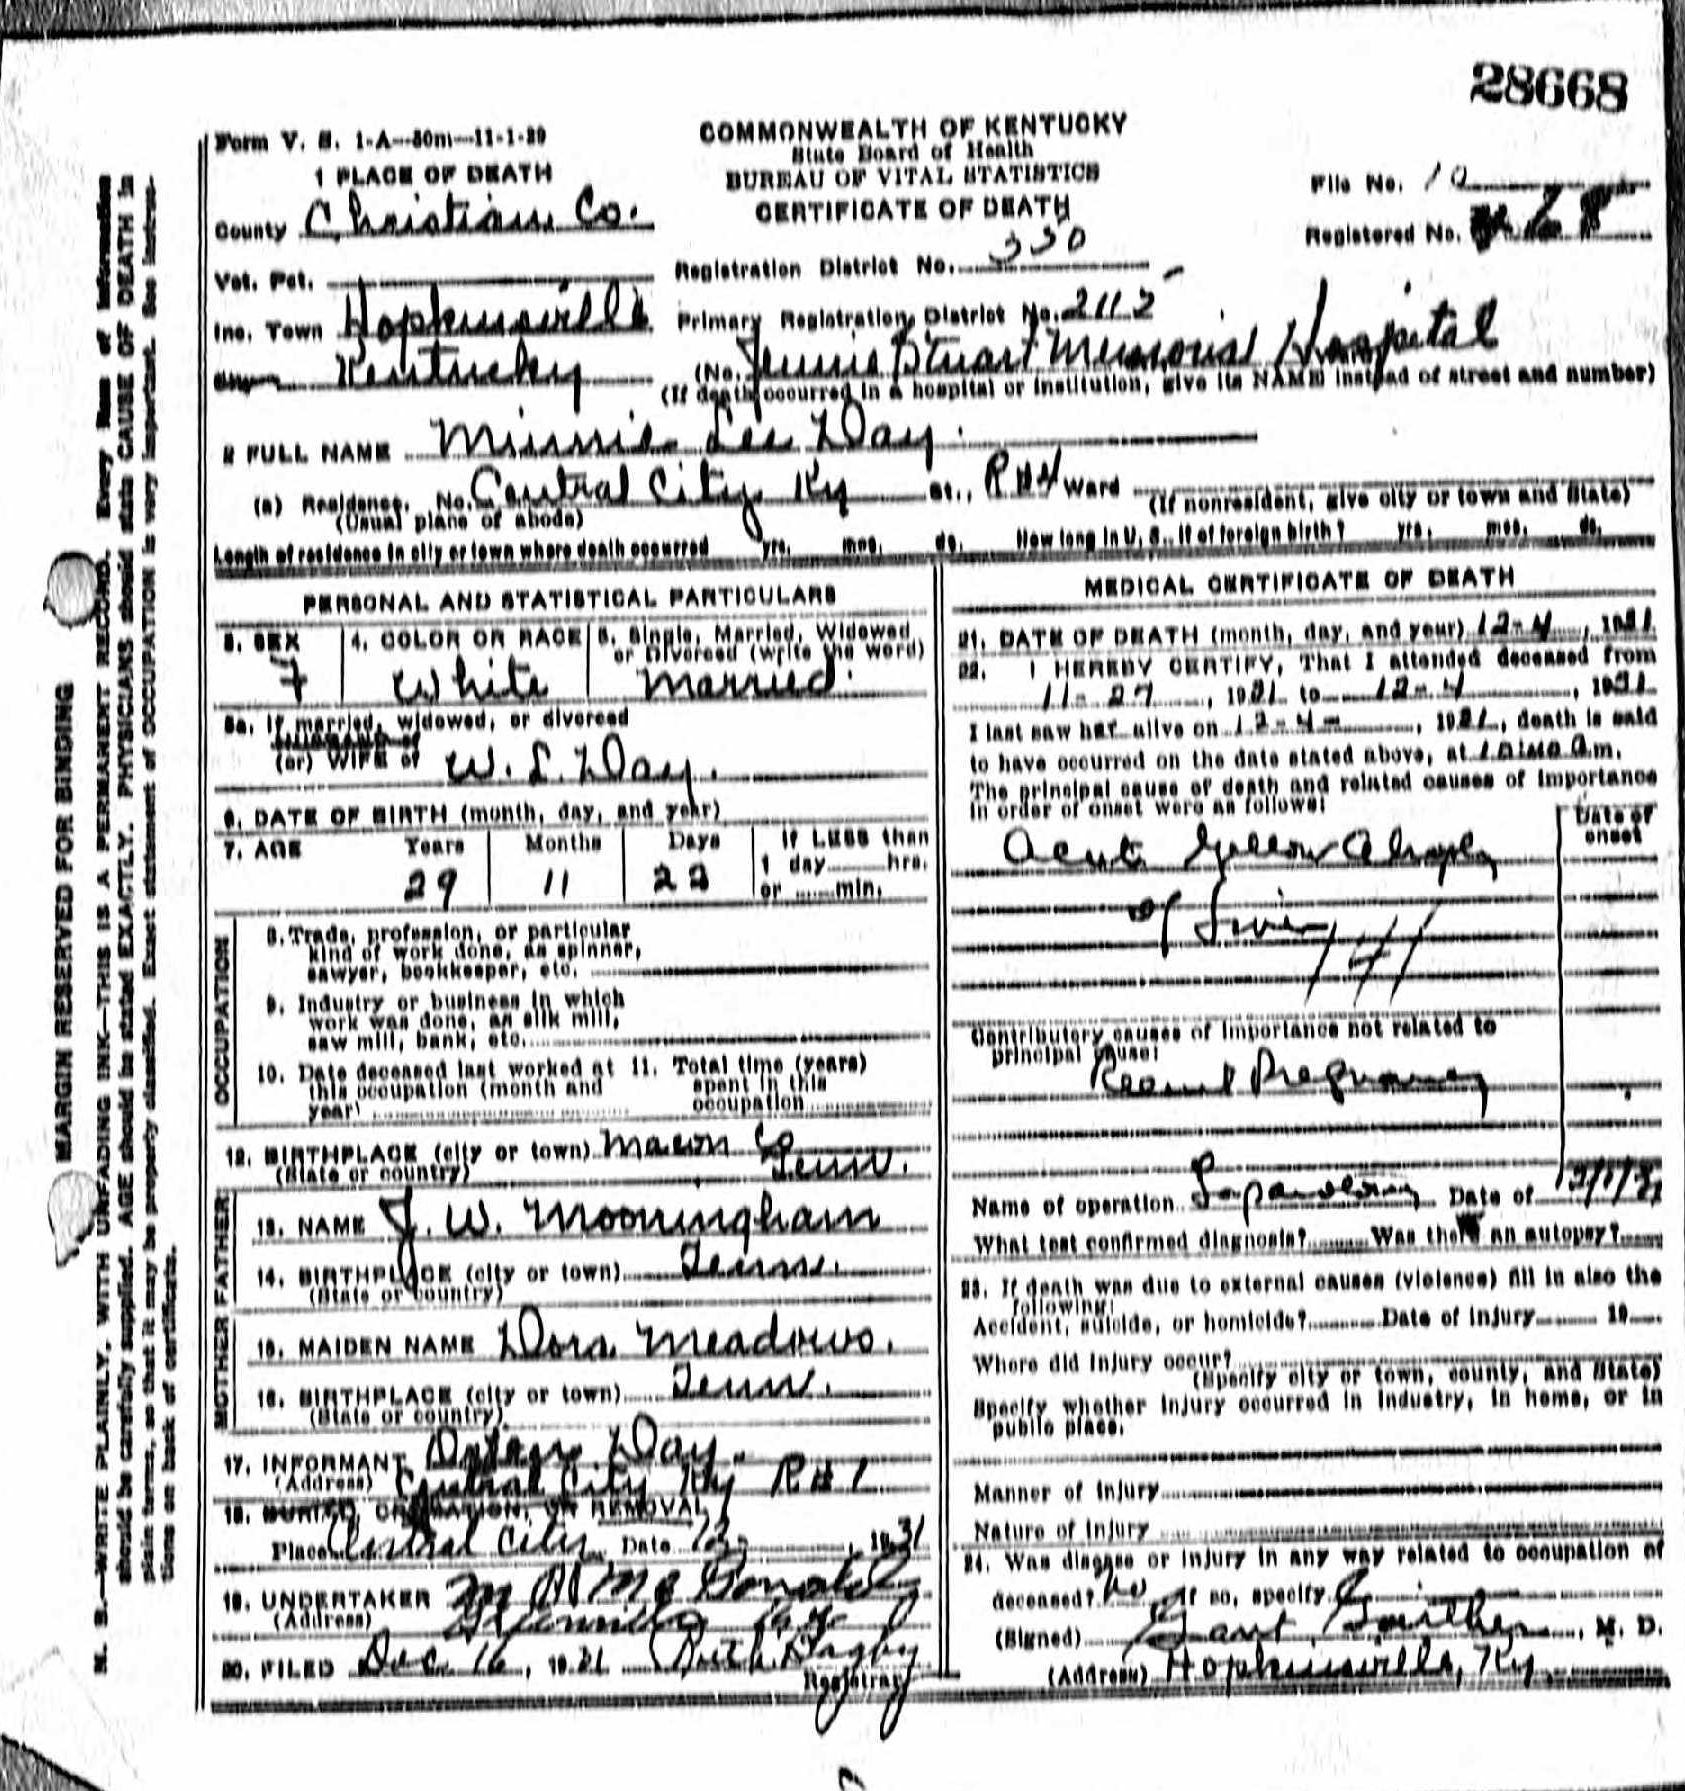 28668
Form V. S. 1-A—50m—11-1-29
COMMONWEALTH OF KENTUCKY
State Board of Health
BUREAU OF VITAL STATISTICS
CERTIFICATE OF DEATH
1 PLACE OF DEATH
File No. 10
County Christian Co.
Registered No. 68
Vot. Pct.
Registration District No. 350
Inc. Town Hopkinsville
Primary Registration District No. 2112
Kentucky
(No. Jennie Stuart Memorial Hospital
(If death occurred in a hospital or institution, give its NAME instead of street and number)
2 FULL NAME Minnie Lee Day.
(a) Residence. No. Central City Ky St., R #4 Ward
(Usual place of abode)
(If nonresident, give city or town and State)
Length of residence in city or town where death occurred yrs. mos. ds. How long in U. S., if of foreign birth? yrs. mos. ds.
PERSONAL AND STATISTICAL PARTICULARS
3. SEX
F
4. COLOR OR RACE
White
5. Single, Married, Widowed
or Divorced (write the word)
Married.
5a. If married, widowed, or divorced
HUSBAND of
(or) WIFE of W. L. Day.
6. DATE OF BIRTH (month, day, and year)
7. AGE Years Months Days If LESS than
1 day hrs.
29 11 22 or min.
OCCUPATION
8. Trade, profession, or particular
kind of work done, as spinner,
sawyer, bookkeeper, etc.
9. Industry or business in which
work was done, as silk mill,
saw mill, bank, etc.
10. Date deceased last worked at
this occupation (month and
year)
11. Total time (years)
spent in this
occupation
12. BIRTHPLACE (city or town) Macon Co
(State or country) Tenn.
FATHER
13. NAME J. W. Mooningham
14. BIRTHPLACE (city or town) Tenn.
(State or country)
MOTHER
15. MAIDEN NAME Dora Meadows.
16. BIRTHPLACE (city or town) Tenn.
(State or country)
17. INFORMANT Day.
(Address) Central City Ky R#1
18. BURIED, CREMATION, OR REMOVAL
Place Central City Date 12 1931
19. UNDERTAKER M
(Address)
20. FILED Dec 16, 1931 Ruth Bagby
Registrar
MEDICAL CERTIFICATE OF DEATH
21. DATE OF DEATH (month, day, and year) 12-4, 1931
22. I HEREBY CERTIFY, That I attended deceased from
11-27, 1931 to 12-4, 1931
I last saw her alive on 12-4-, 1931, death is said
to have occurred on the date stated above, at a.m.
The principal cause of death and related causes of importance
in order of onset were as follows:
Date of
onset
Acute Yellow Atrophy
of Liver
Contributory causes of importance not related to
principal cause:
Recent Pregnancy
Name of operation Date of 12/1/31
What test confirmed diagnosis? Was there an autopsy?
23. If death was due to external causes (violence) fill in also the
following:
Accident, suicide, or homicide? Date of injury 19
Where did injury occur?
(Specify city or town, county, and State)
Specify whether injury occurred in industry, in home, or in
public place.
Manner of injury
Nature of injury
24. Was disease or injury in any way related to occupation of
deceased? No If so, specify
(Signed) Gant Gaither, M. D.
(Address) Hopkinsville, Ky.
MARGIN RESERVED FOR BINDING
N. B.—WRITE PLAINLY, WITH UNFADING INK—THIS IS A PERMANENT RECORD. Every item of information
should be carefully supplied. AGE should be stated EXACTLY. PHYSICIANS should state CAUSE OF DEATH in
plain terms, so that it may be properly classified. Exact statement of OCCUPATION is very important. See instruc-
tions on back of certificate.